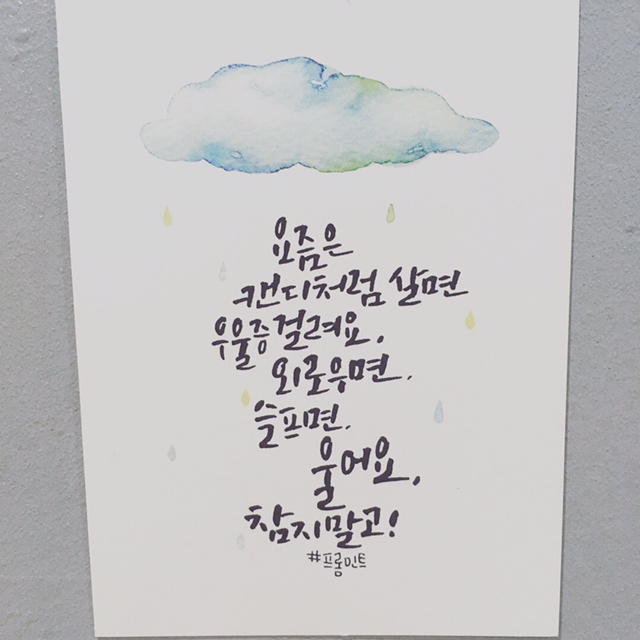 요즘은
캔디처럼 살면
우울증 걸려요.
외로우면.
슬프면.
울어요.
참지말고!
#프롬민트